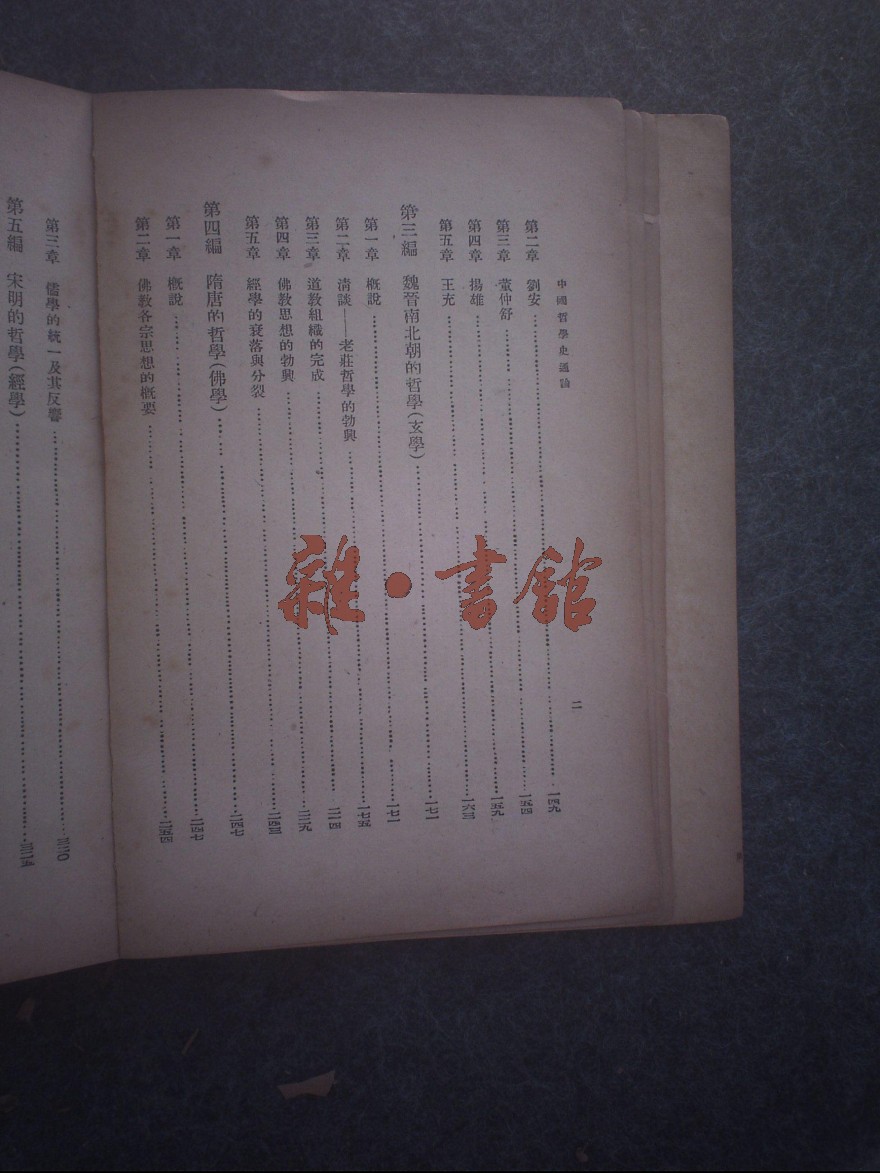 中國哲學史通論
二
第二章 劉安……一四九
第三章 董仲舒……一五四
第四章 揚雄……一五九
第五章 王充……一六三
第三編 魏晉南北朝的哲學(玄學)……一七一
第一章 概說……一七一
第二章 清談——老莊哲學的勃興……一七五
第三章 道教組織的完成……二一四
第四章 佛教思想的勃興……
第五章 經學的衰落與分裂……二四三
第四編 隋唐的哲學(佛學)……二四七
第一章 概說……二四七
第二章 佛教各宗思想的概要……二五四
第三章 儒學的統一及其反響……三二〇
第五編 宋明的哲學(經學)……
雜·書館